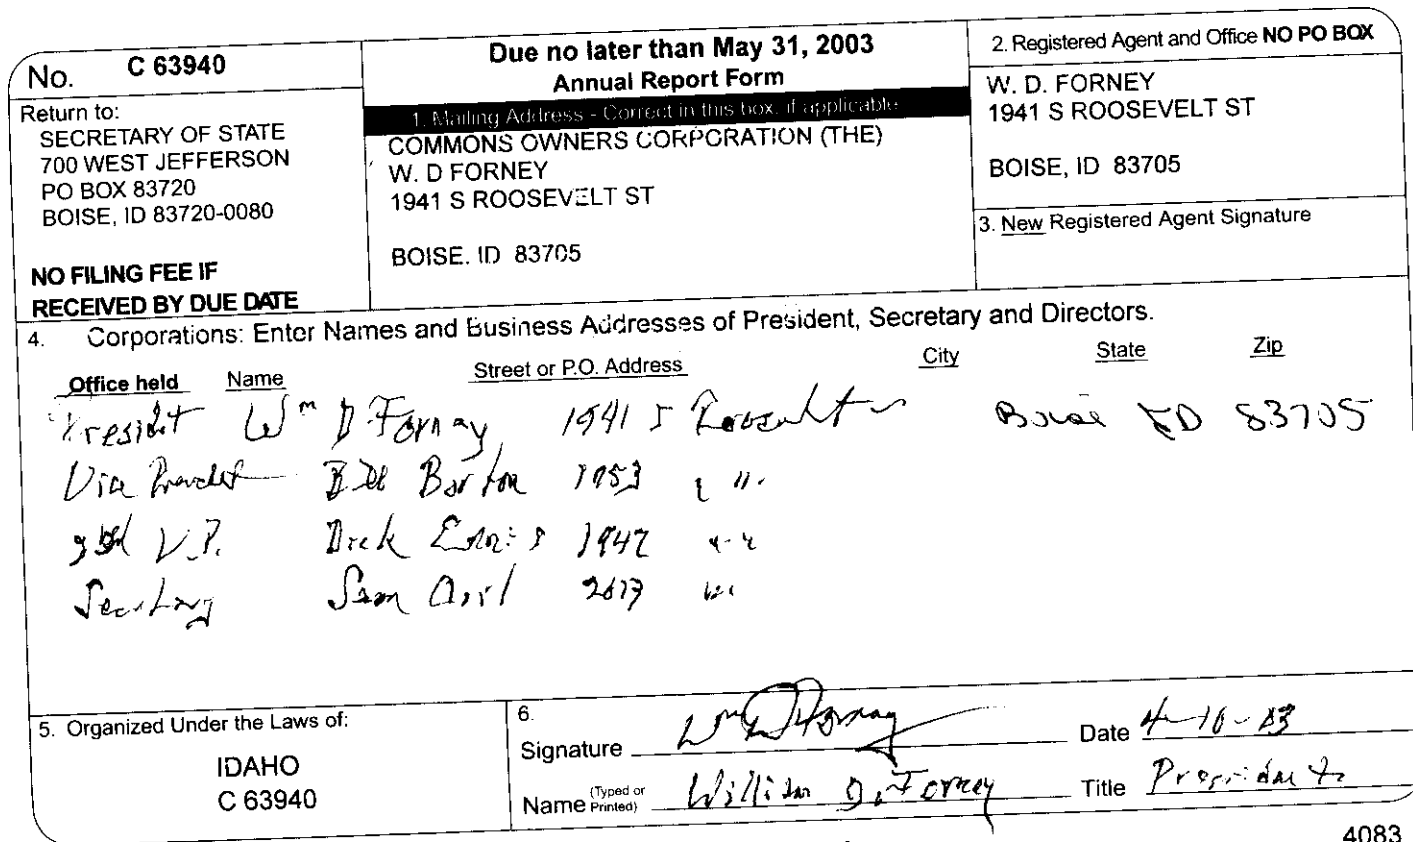 No. C 63940
Return to:
SECRETARY OF STATE
700 WEST JEFFERSON
PO BOX 83720
BOISE, ID 83720-0080
NO FILING FEE IF
RECEIVED BY DUE DATE
Due no later than May 31, 2003
Annual Report Form
1. Mailing Address - Correct in this box, if applicable
COMMONS OWNERS CORPORATION (THE)
W. D FORNEY
1941 S ROOSEVELT ST
BOISE, ID 83705
2. Registered Agent and Office NO PO BOX
W. D. FORNEY
1941 S ROOSEVELT ST
BOISE, ID 83705
3. New Registered Agent Signature
4. Corporations: Enter Names and Business Addresses of President, Secretary and Directors.
Office held Name Street or P.O. Address City State Zip
President Wm D Forney 1941 S Roosevelt Boise ID 83705
Vice President Bill Barton 1953 " "
V.P. Dick 1947 " "
Secretary Sam 2613
5. Organized Under the Laws of:
IDAHO
C 63940
6.
Signature Wm D Forney Date 4-10-03
Name (Typed or Printed) William D. Forney Title President
4083